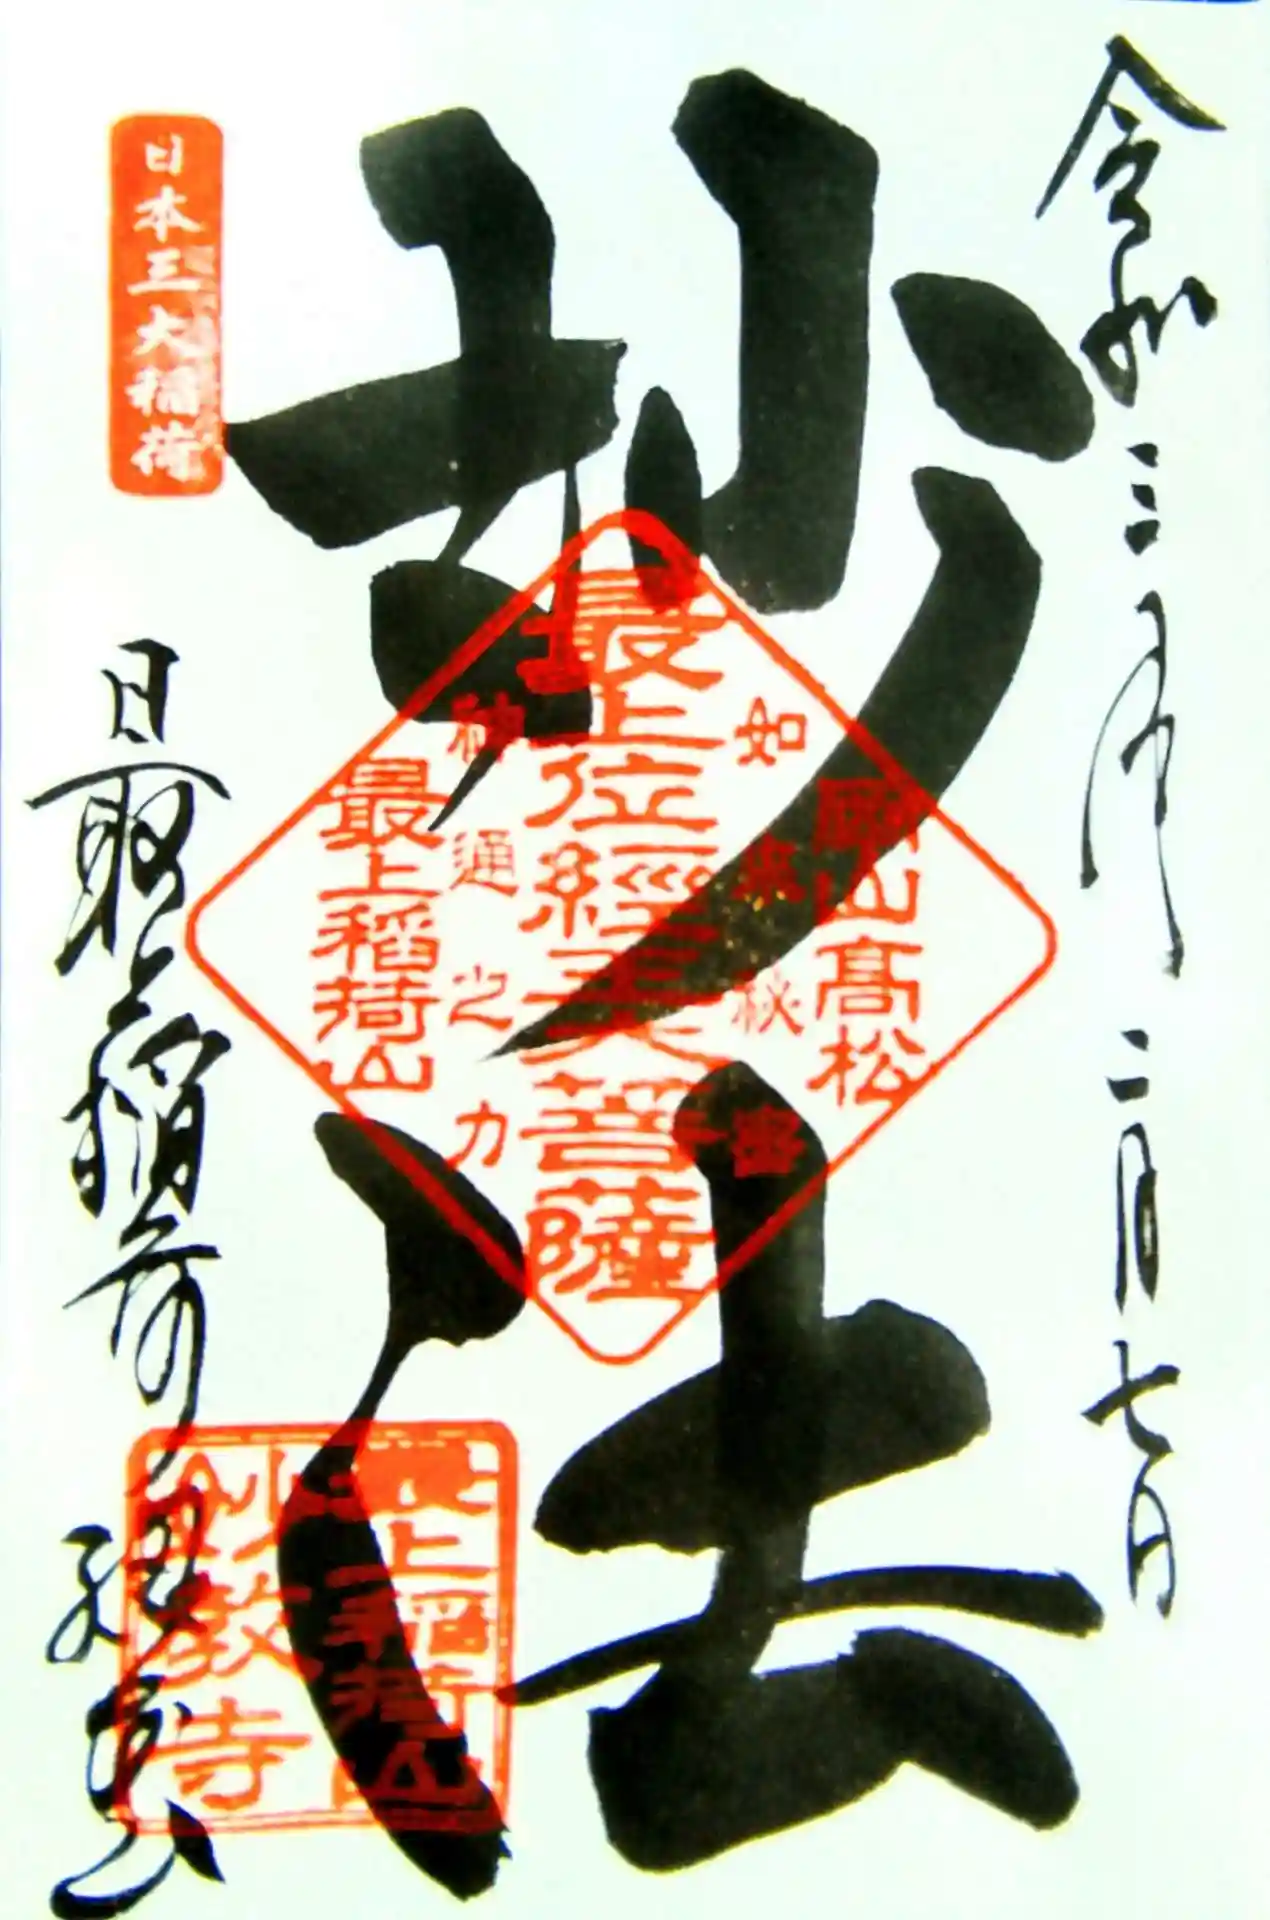 令和三年二月七日
妙法
如来秘密
神通之力
岡山高松
最上位經王大菩薩
最上稲荷山
日本三大稲荷
最上稲荷
最上稲荷山
妙教寺